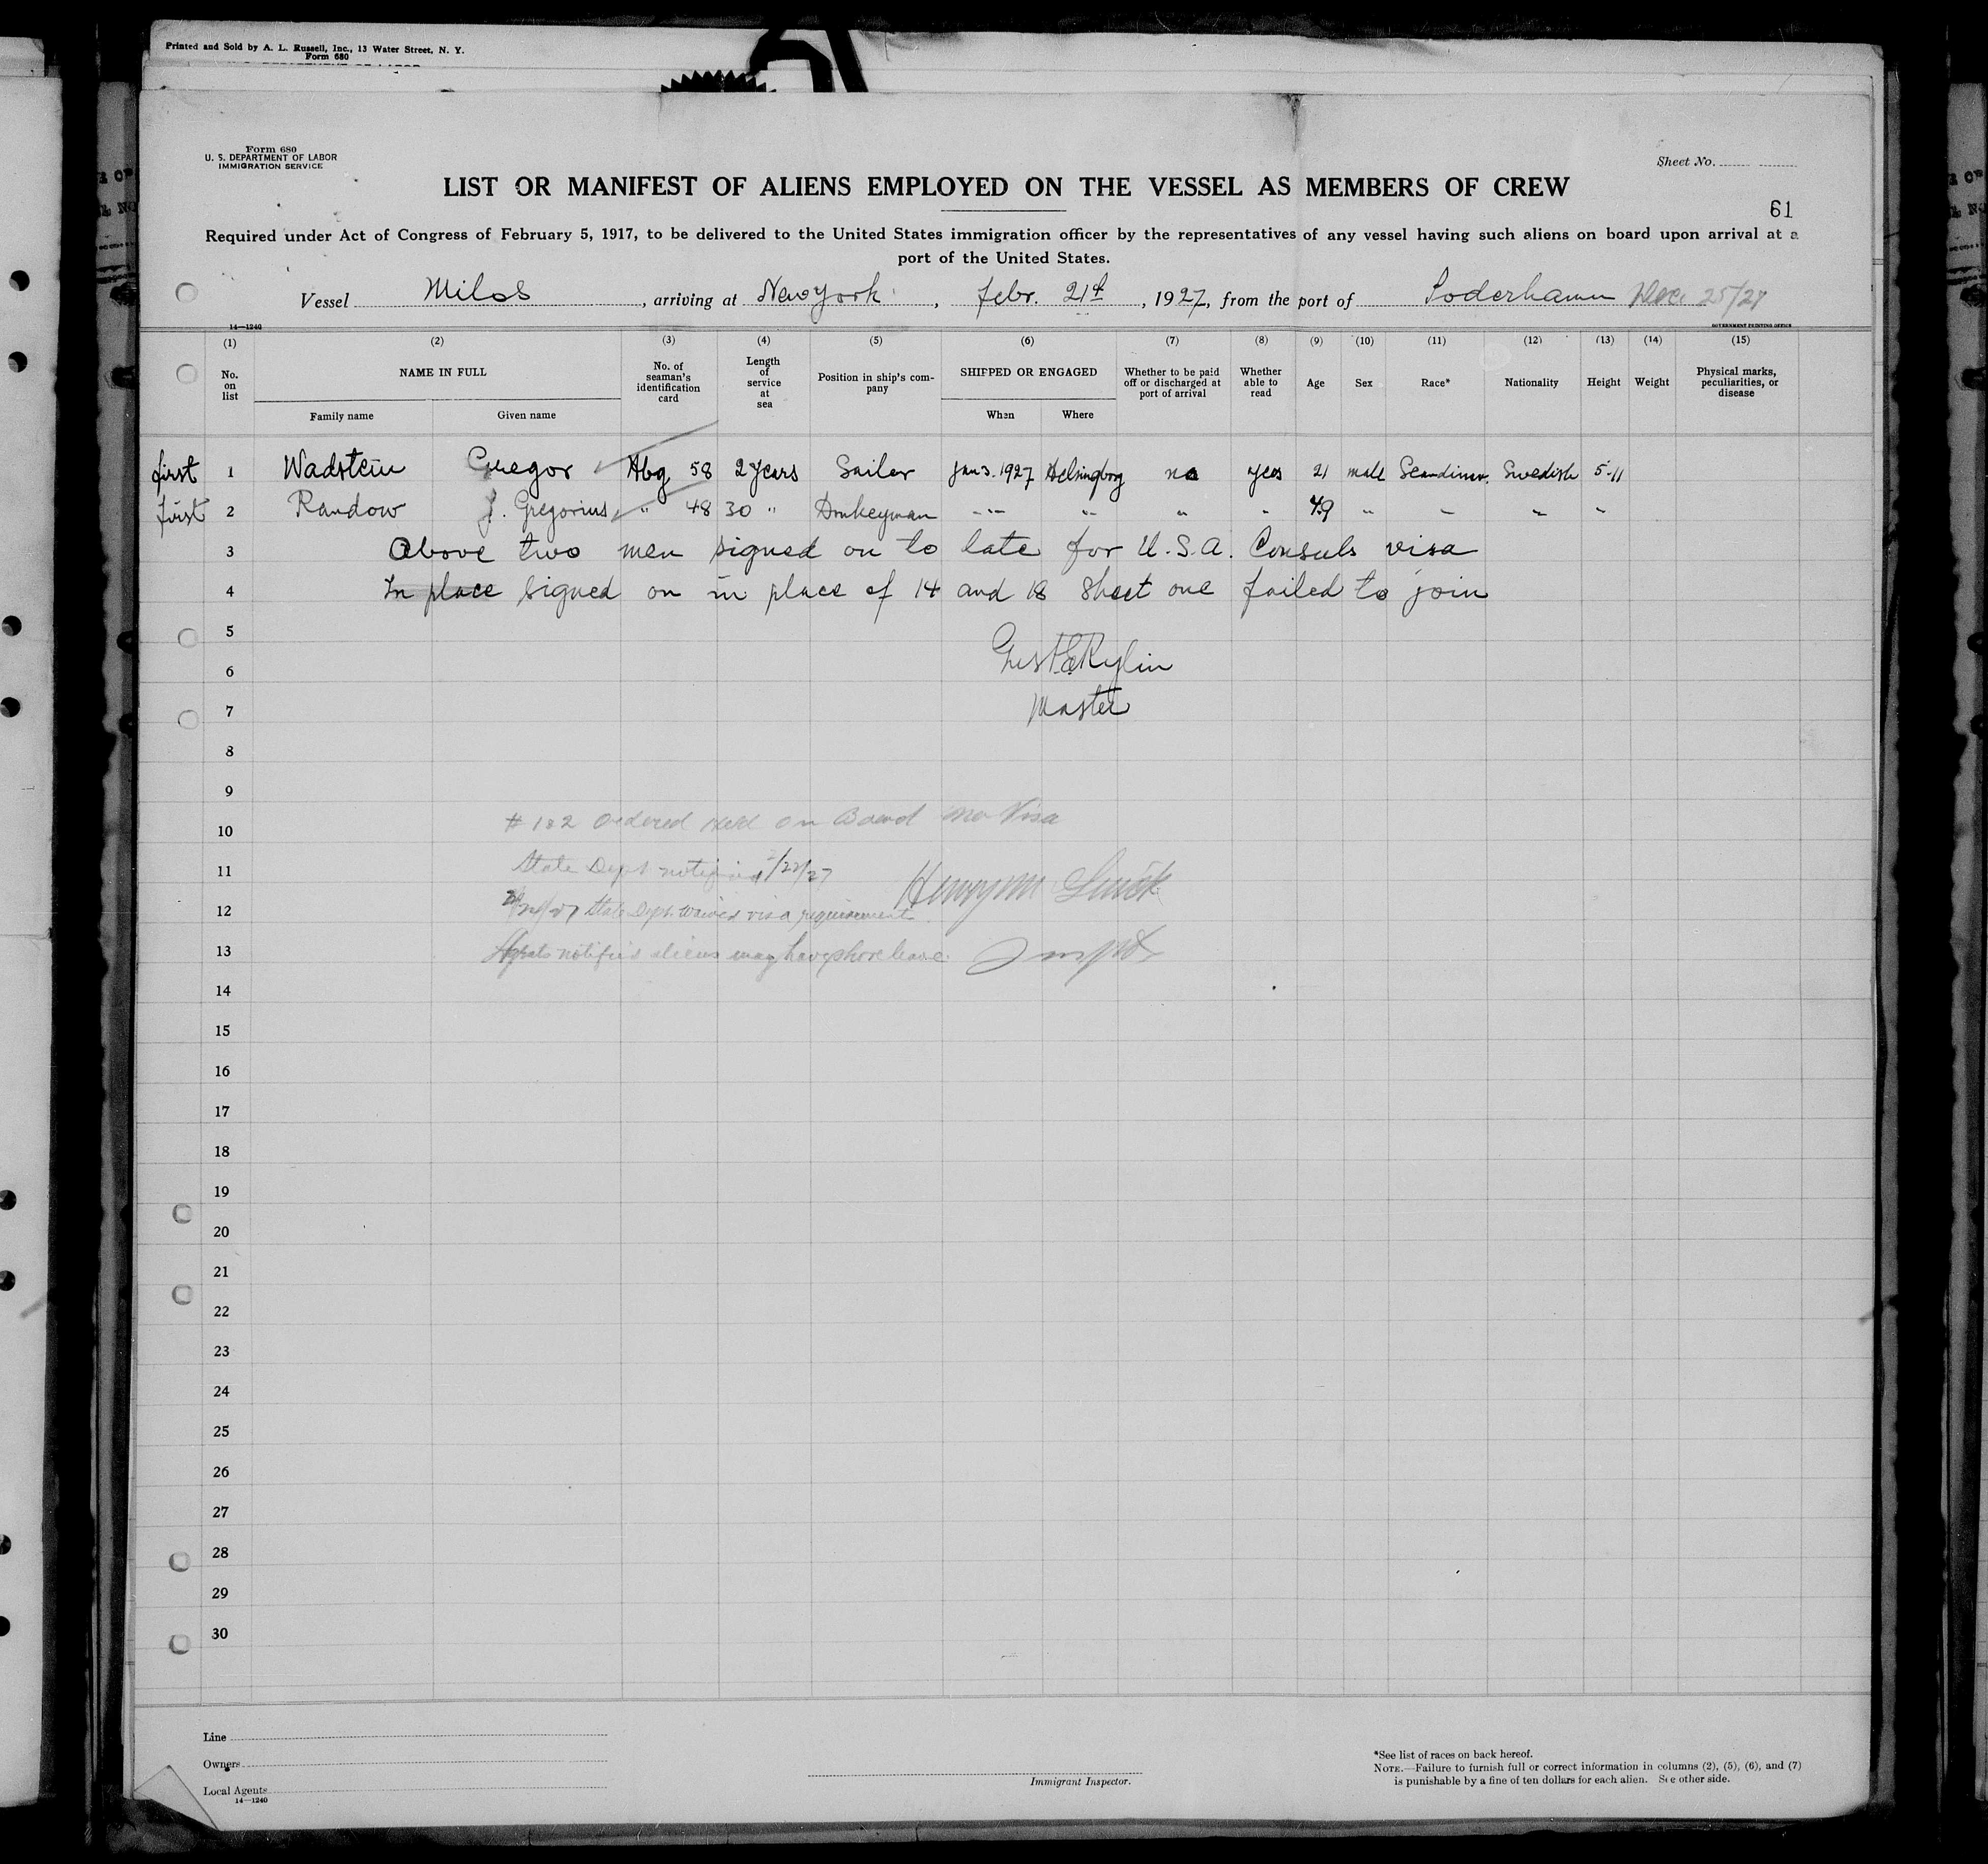 Printed and Sold by A. L. Russell, Inc., 13 Water Street, N. Y.
Form 680
Form 680
U. S. DEPARTMENT OF LABOR
IMMIGRATION SERVICE
Sheet No.
LIST OR MANIFEST OF ALIENS EMPLOYED ON THE VESSEL AS MEMBERS OF CREW
61
Required under Act of Congress of February 5, 1917, to be delivered to the United States immigration officer by the representatives of any vessel having such aliens on board upon arrival at a
port of the United States.
Vessel Milos, arriving at New york, febr. 21st, 1927, from the port of Soderhamn Dec. 25/27
14—1240
GOVERNMENT PRINTING OFFICE
(1) (2) (3) (4) (5) (6) (7) (8) (9) (10) (11) (12) (13) (14) (15)
No. on list NAME IN FULL No. of seaman's identification card Length of service at sea Position in ship's company SHIPPED OR ENGAGED Whether to be paid off or discharged at port of arrival Whether able to read Age Sex Race* Nationality Height Weight Physical marks, peculiarities, or disease
Family name Given name When Where
first 1 Wadstein Gregor Hbg 58 2 years Sailor Jan 3. 1927 Helsingborg no yes 21 male Scandinav. Swedish 5-11
first 2 Randow J. Gregorius " 48 30 " Donkeyman " " " " 49 " " " "
3 Above two men signed on to late for U.S.A. Consuls visa
4 In place signed on in place of 14 and 18 Sheet one failed to join
5
6 Gust E Rylin
7 Master
8
9
10 # 1&2 Ordered Held on Board no Visa
11 State Dept notified 2/22/27 Henry M
12 2/24/27 State Dept. waived visa requirement
13 Agents notified aliens may have shore leave.
14
15
16
17
18
19
20
21
22
23
24
25
26
27
28
29
30
Line
Owners
Local Agents
14—1240
Immigrant Inspector.
*See list of races on back hereof.
NOTE.—Failure to furnish full or correct information in columns (2), (5), (6), and (7)
is punishable by a fine of ten dollars for each alien. See other side.